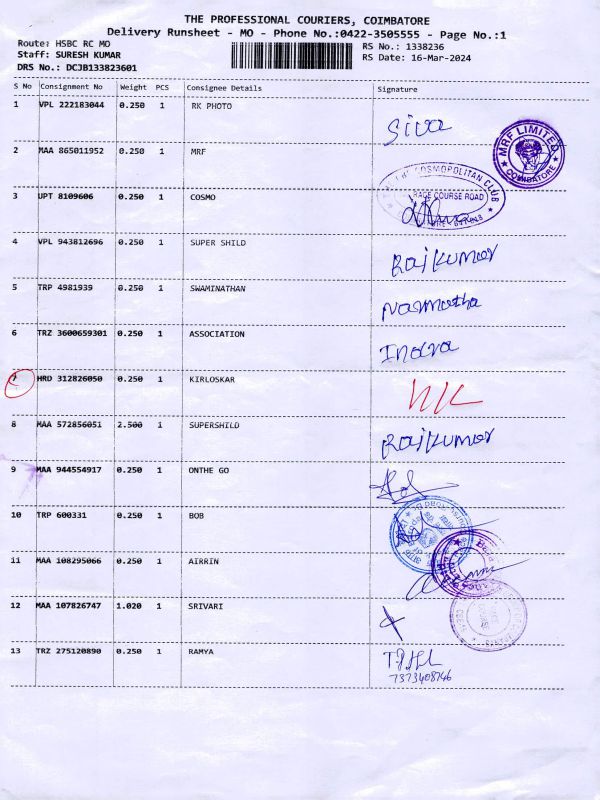 THE PROFESSIONAL COURIERS, COIMBATORE
Delivery Runsheet - MO - Phone No.:0422-3505555 - Page No.:1
Route: HSBC RC MO RS No.: 1338236
Staff: SURESH KUMAR RS Date: 16-Mar-2024
DRS No.: DCJB133823601
S No Consignment No Weight PCS Consignee Details Signature
1 VPL 222183044 0.250 1 RK PHOTO Siva
2 MAA 865011952 0.250 1 MRF
MRF LIMITED COIMBATORE
THE COSMOPOLITAN CLUB
3 UPT 8109606 0.250 1 COSMO RACE COURSE ROAD
4 VPL 943812696 0.250 1 SUPER SHILD Rajkumar
5 TRP 4981939 0.250 1 SWAMINATHAN Narmatha
6 TRZ 3600659301 0.250 1 ASSOCIATION Indra
7 HRD 312826050 0.250 1 KIRLOSKAR
8 MAA 572856051 2.500 1 SUPERSHILD Rajkumar
9 MAA 944554917 0.250 1 ONTHE GO
10 TRP 600331 0.250 1 BOB
11 MAA 108295066 0.250 1 AIRRIN
12 MAA 107826747 1.020 1 SRIVARI
13 TRZ 275120890 0.250 1 RAMYA
7373408746